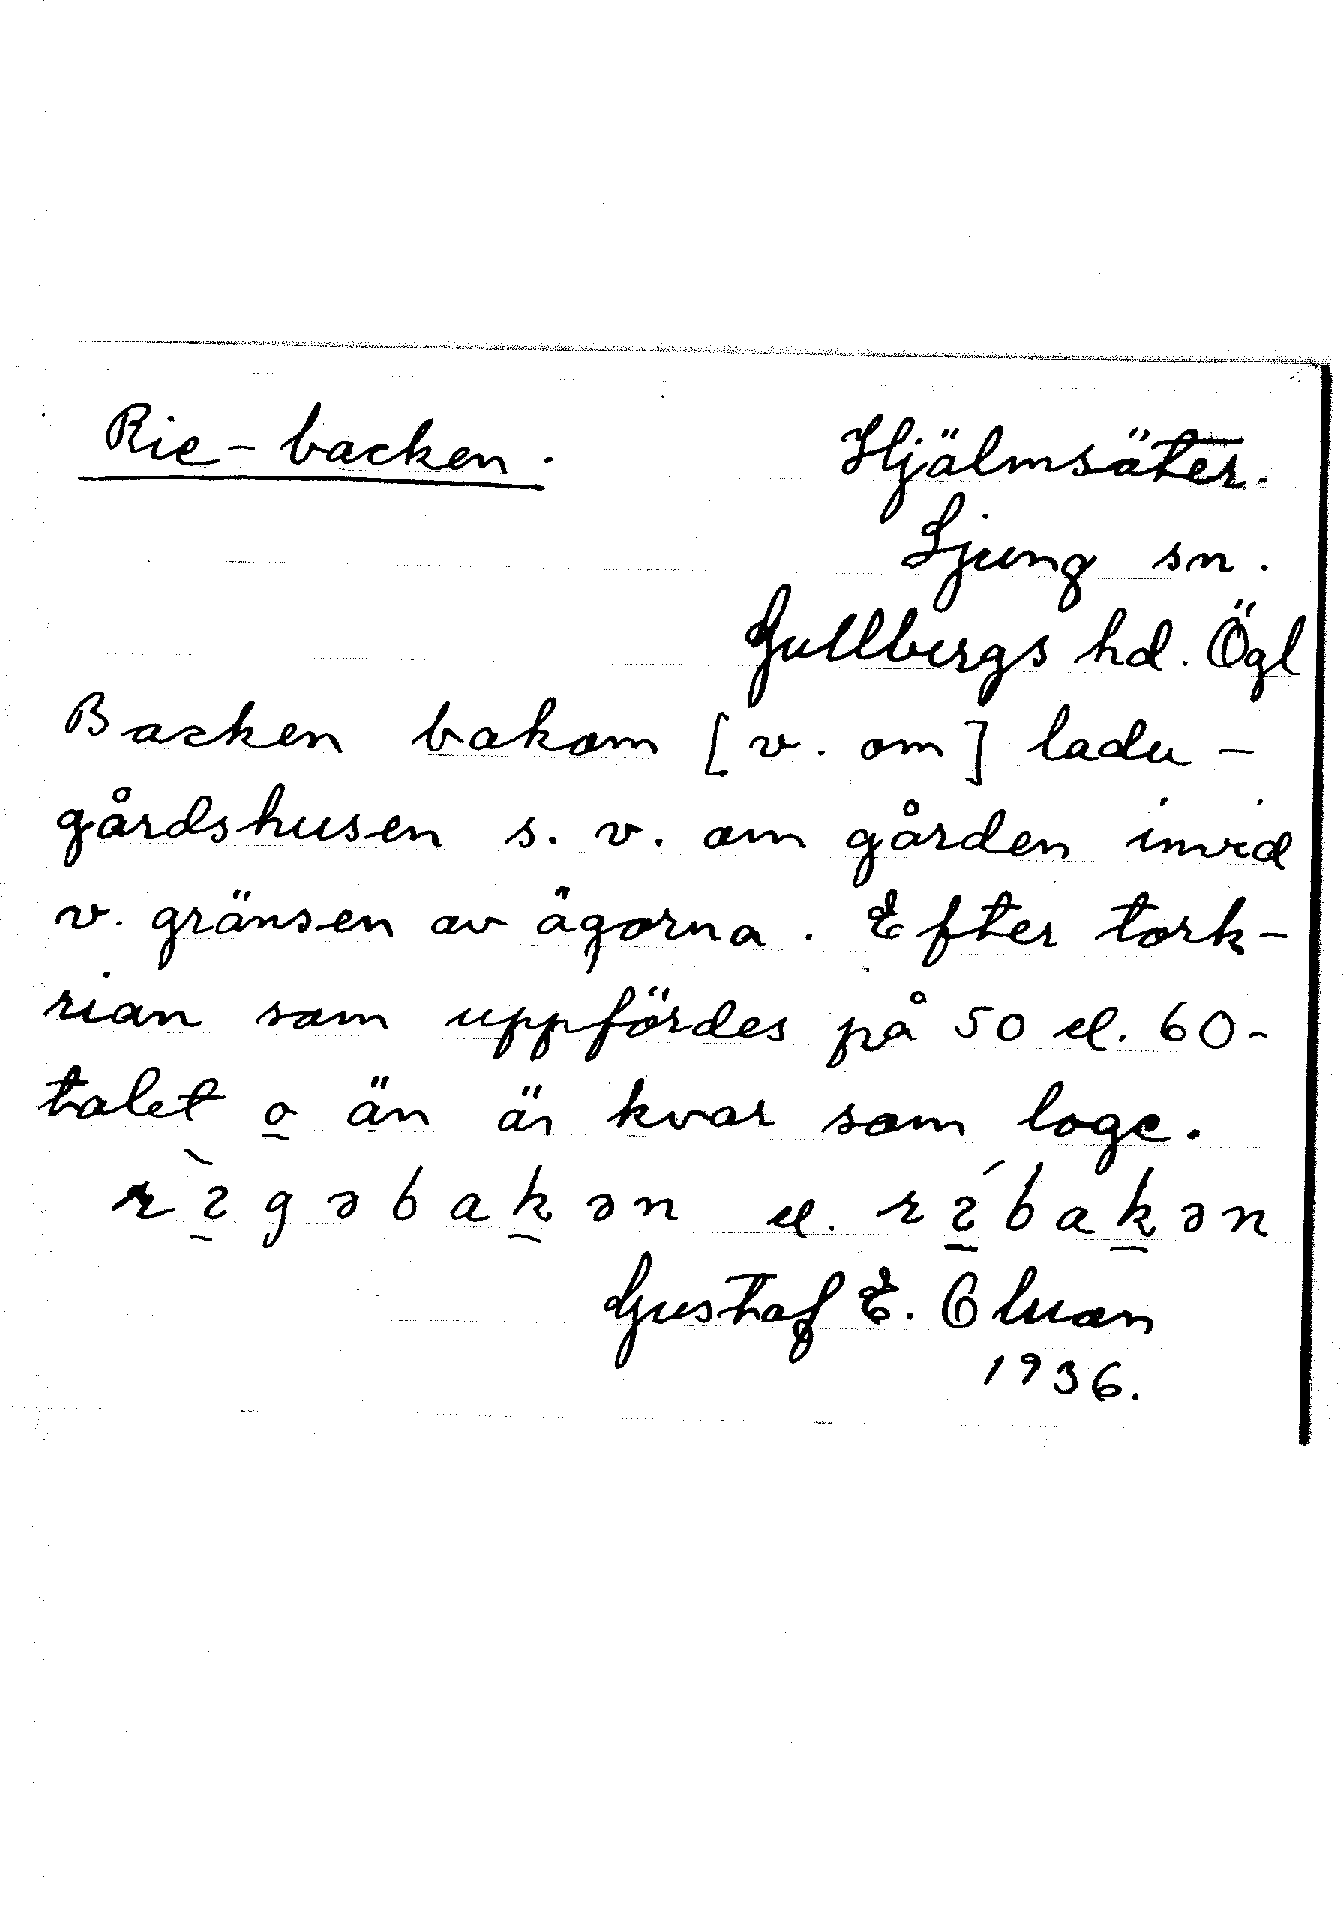 Rie-backen. Hjälmsäter.
Ljung sn.
Gullbergs hd. Ögl
Backen bakom [v. om] ladu-
gårdshusen s. v. om gården invid
v. gränsen av ägorna. Efter tork-
rian som uppfördes på 50 el. 60-
talet o än är kvar som loge.
el.
Gustaf E.
1936.